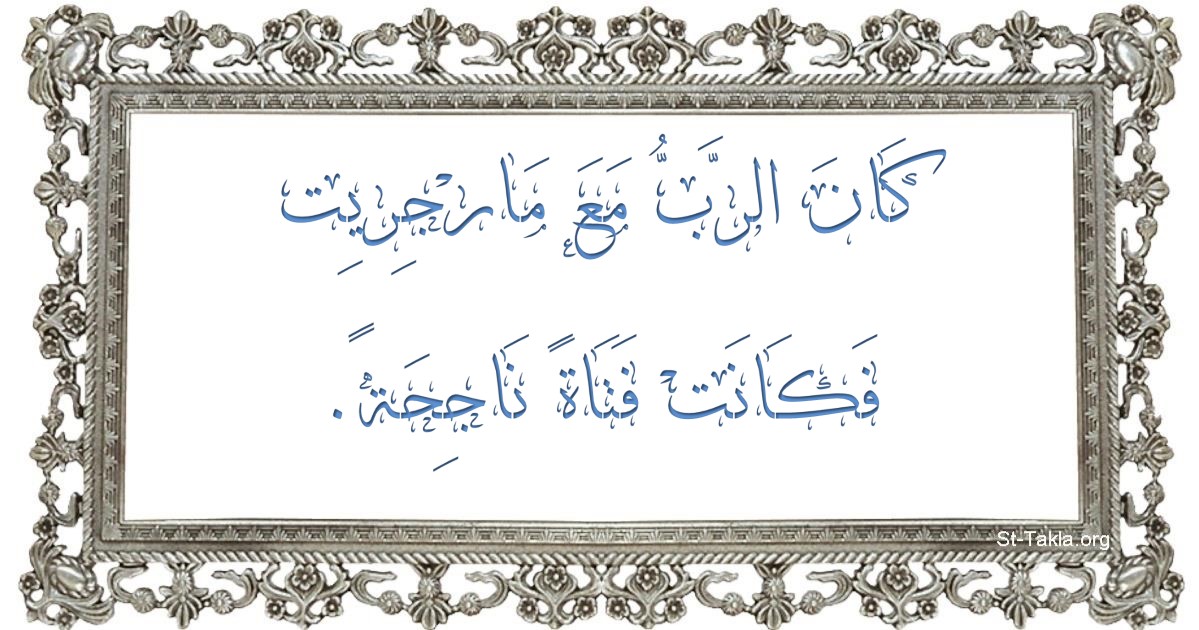 كَانَ الرَّبُّ مَعَ مَارْجِرِيِت
فَكَانَتْ فَتَاةً نَاجِحَةً.
St-Takla.org